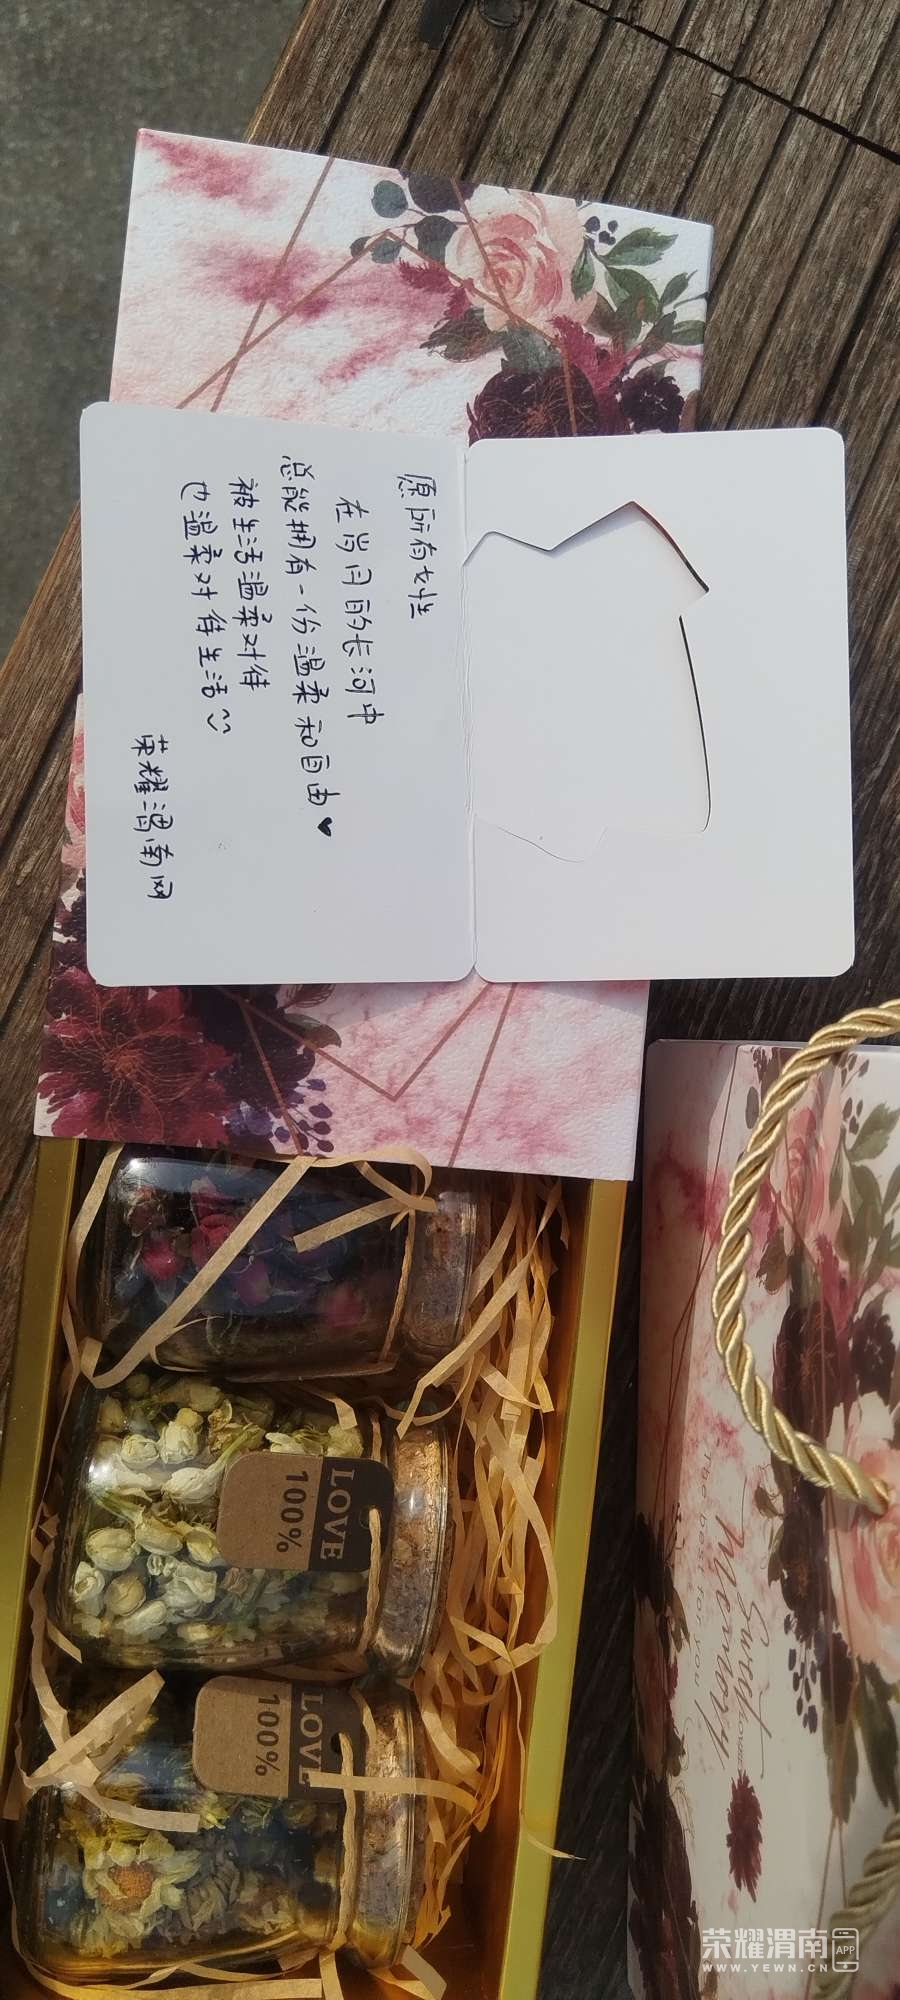 愿所有女性
在岁月的长河中
总能拥有一份温柔和自由♥
被生活温柔对待
也温柔对待生活
荣耀渭南网
LOVE
100%
LOVE
100%
Sweet
Memory
荣耀渭南
APP
WWW.YEWN.CN